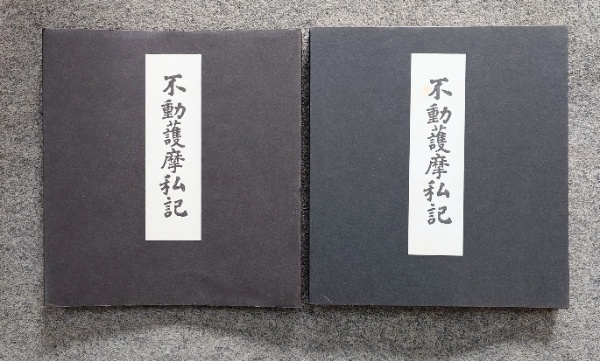 不動護摩私記
不動護摩私記